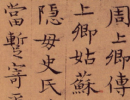 周上卿傳
上卿姑蘇
隱母史氏
當蹔寄